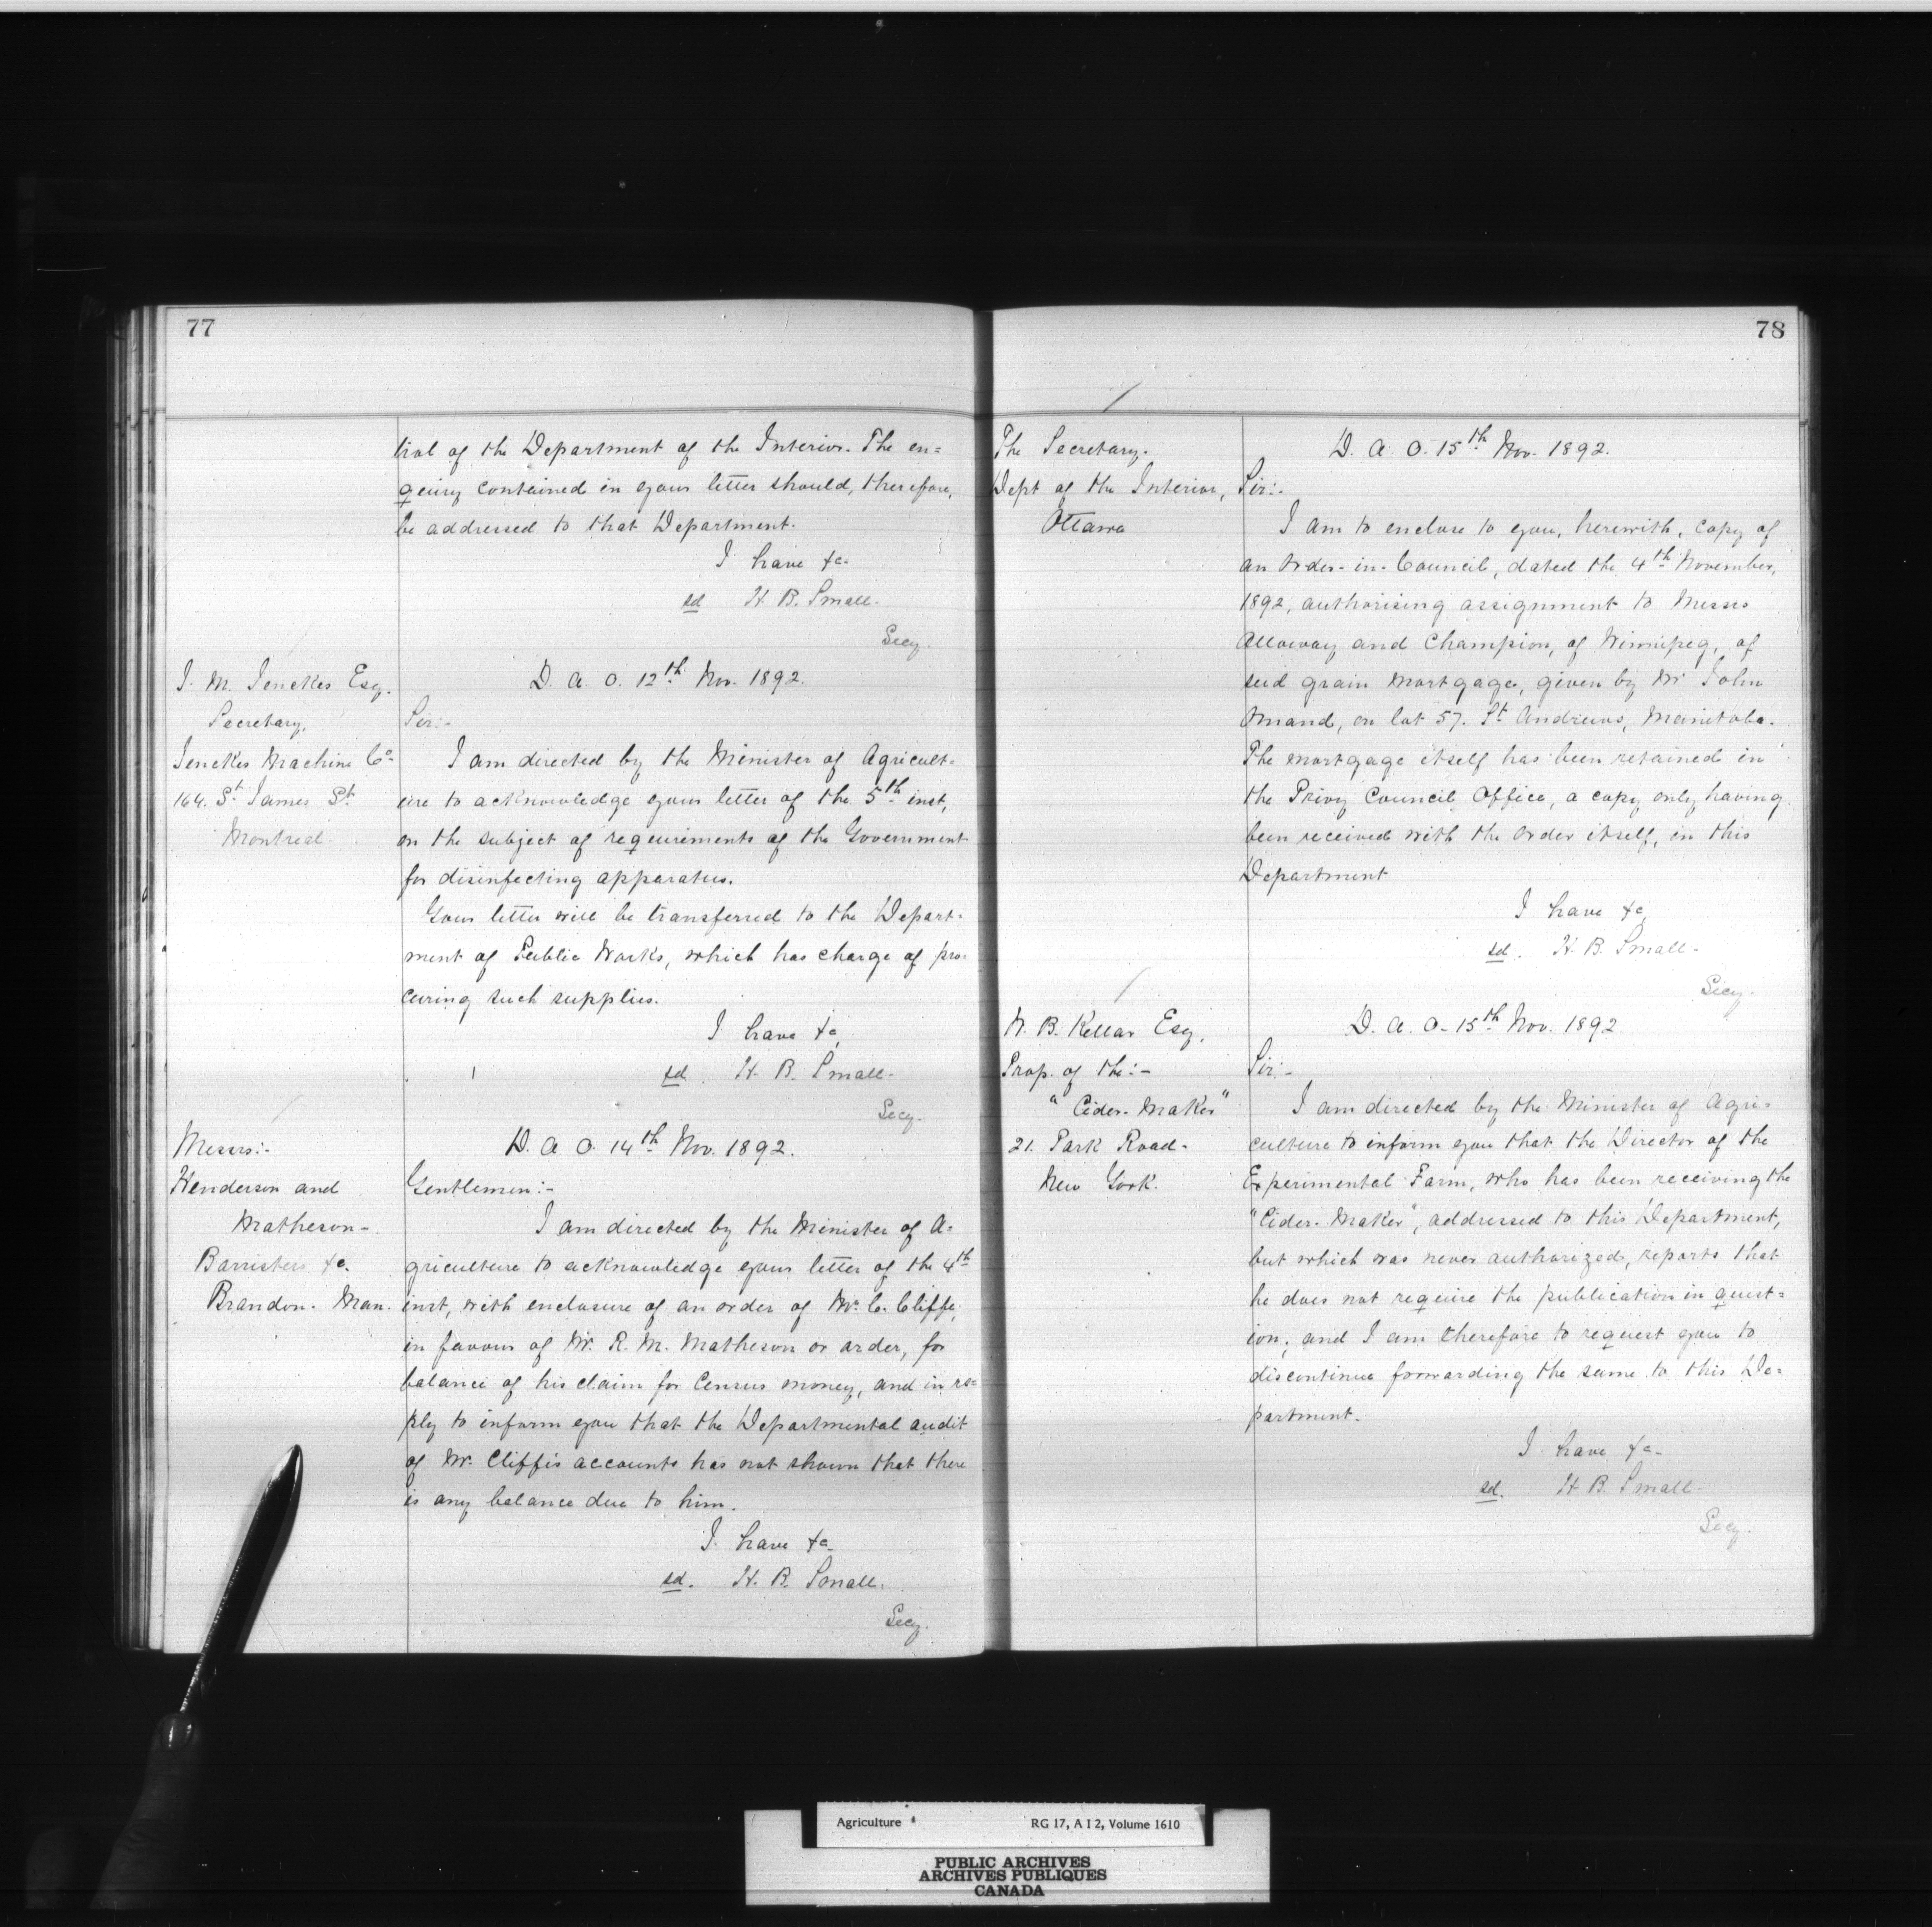 77
trol of the Department of the Interior. The en=
quiry contained in your letter should, therefore,
be addressed to that Department.
I have &c.
sd H. B. Small.
Secy.
J. M. Jenckes Esq.
Secretary,
Jenckes Machine Co.
164. St James St.
Montreal.
D. A. O. 12th Nov. 1892.
Sir:-
I am directed by the Minister of Agricult=
ure to acknowledge your letter of the 5th inst,
on the subject of requirements of the Government
for disinfecting apparatus.
Your letter will be transferred to the Depart=
ment of Public Works, which has charge of pro=
curing such supplies.
I have &c,
sd. H. B. Small.
Secy.
Messrs:-
Henderson and
Matheson-
Barristers &c.
Brandon. Man.
D. A. O. 14th Nov. 1892.
Gentlemen:-
I am directed by the Minister of A=
griculture to acknowledge your letter of the 4th
inst, with enclosure of an order of Mr. C. Cliffe,
in favour of Mr. R. M. Matheson or order, for
balance of his claim for Census money, and in re=
ply to inform you that the Departmental audit
of Mr. Cliffe's accounts has not shown that there
is any balance due to him.
I have &c.
sd. H. B. Small.
Secy.
78
The Secretary.
Dept of the Interior,
Ottawa
D. A. O. 15th Nov. 1892.
Sir:-
I am to enclose to you, herewith, copy of
an Order-in-Council, dated the 4th November,
1892, authorising assignment to Messrs
Alloway and Champion, of Winnipeg, of
seed grain mortgage, given by Mr John
Omand, on lot 57. St Andrews, Manitoba.
The mortgage itself has been retained in
the Privy Council Office, a copy only having
been received with the Order itself, in this
Department
I have &c,
sd. H. B. Small-
Secy.
W. B. Kellar Esq,
Prop. of the:-
"Cider-Maker"
21. Park Road-
New York.
D. A. O. 15th Nov. 1892.
Sir:-
I am directed by the Minister of Agri=
culture to inform you that the Director of the
Experimental Farm, who has been receiving the
"Cider-Maker", addressed to this Department,
but which was never authorized, reports that
he does not require the publication in quest=
ion, and I am therefore to request you to
discontinue forwarding the same to this De=
partment.
I have &c.
sd. H. B. Small.
Secy.
Agriculture RG 17, A I 2, Volume 1610
PUBLIC ARCHIVES
ARCHIVES PUBLIQUES
CANADA